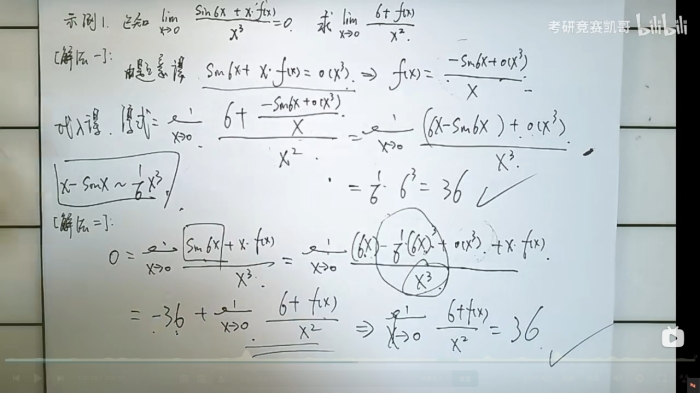 考研竞赛凯哥 bilibili
示例1. 已知 lim x→0 (sin6x + x·f(x))/x³ = 0. 求 lim x→0 (6+f(x))/x².
[解法一]: 由题意得 sin6x + x·f(x) = o(x³) ⇒ f(x) = (-sin6x+o(x³))/x
代入得. 原式 = lim x→0 (6 + (-sin6x+o(x³))/x)/x² = lim x→0 ((6x-sin6x)+o(x³))/x³
x-sinx ~ 1/6 x³, = 1/6·6³ = 36 ✓
[解法二]:
0 = lim x→0 (sin6x + x·f(x))/x³ = lim x→0 ((6x) - 1/6(6x)³ + o(x³) + x·f(x))/x³
= -36 + lim x→0 (6+f(x))/x² ⇒ lim x→0 (6+f(x))/x² = 36 ✓